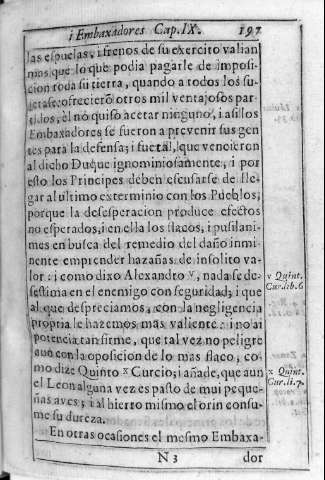 i Embaxadores Cap. IX. 197
las espuelas, i frenos de su exercito valian
mas que lo que podia pagarle de imposi-
cion toda su tierra, quando a todos los su-
jetase: ofrecierõ otros mil ventajosos par-
tidos, èl no quiso acetar ninguno, i asi los
Embaxadores se fueron a prevenir sus gen
tes para la defensa; i fue tal, que vencieron
al dicho Duque ignominiosamente, i por
esto los Principes deben escusarse de lle-
gar al ultimo exterminio con los Pueblos;
porque la desesperacion produce efectos
no esperados, i en ella los flacos, i pusilani-
mes en busca del remedio del daño inmi-
nente emprender hazañas de insolito va-
lor: i como dixo Alexandro v, nada se de-
sestima en el enemigo con seguridad; i que
al que despreciamos, con la negligencia
propria le hazemos mas valiente: i no ai
potencia tan firme, que tal vez no peligre
aun con la oposicion de lo mas flaco, co-
mo dize Quinto x Curcio; i añade, que aun
el Leon alguna vez es pasto de mui peque-
ñas aves; i al hierro mismo el orin consu-
me su dureza.
En otras ocasiones el mesmo Embaxa-
N 3 dor
v Quint.
Cur. lib. 6
x Quint.
Cur. li. 7.